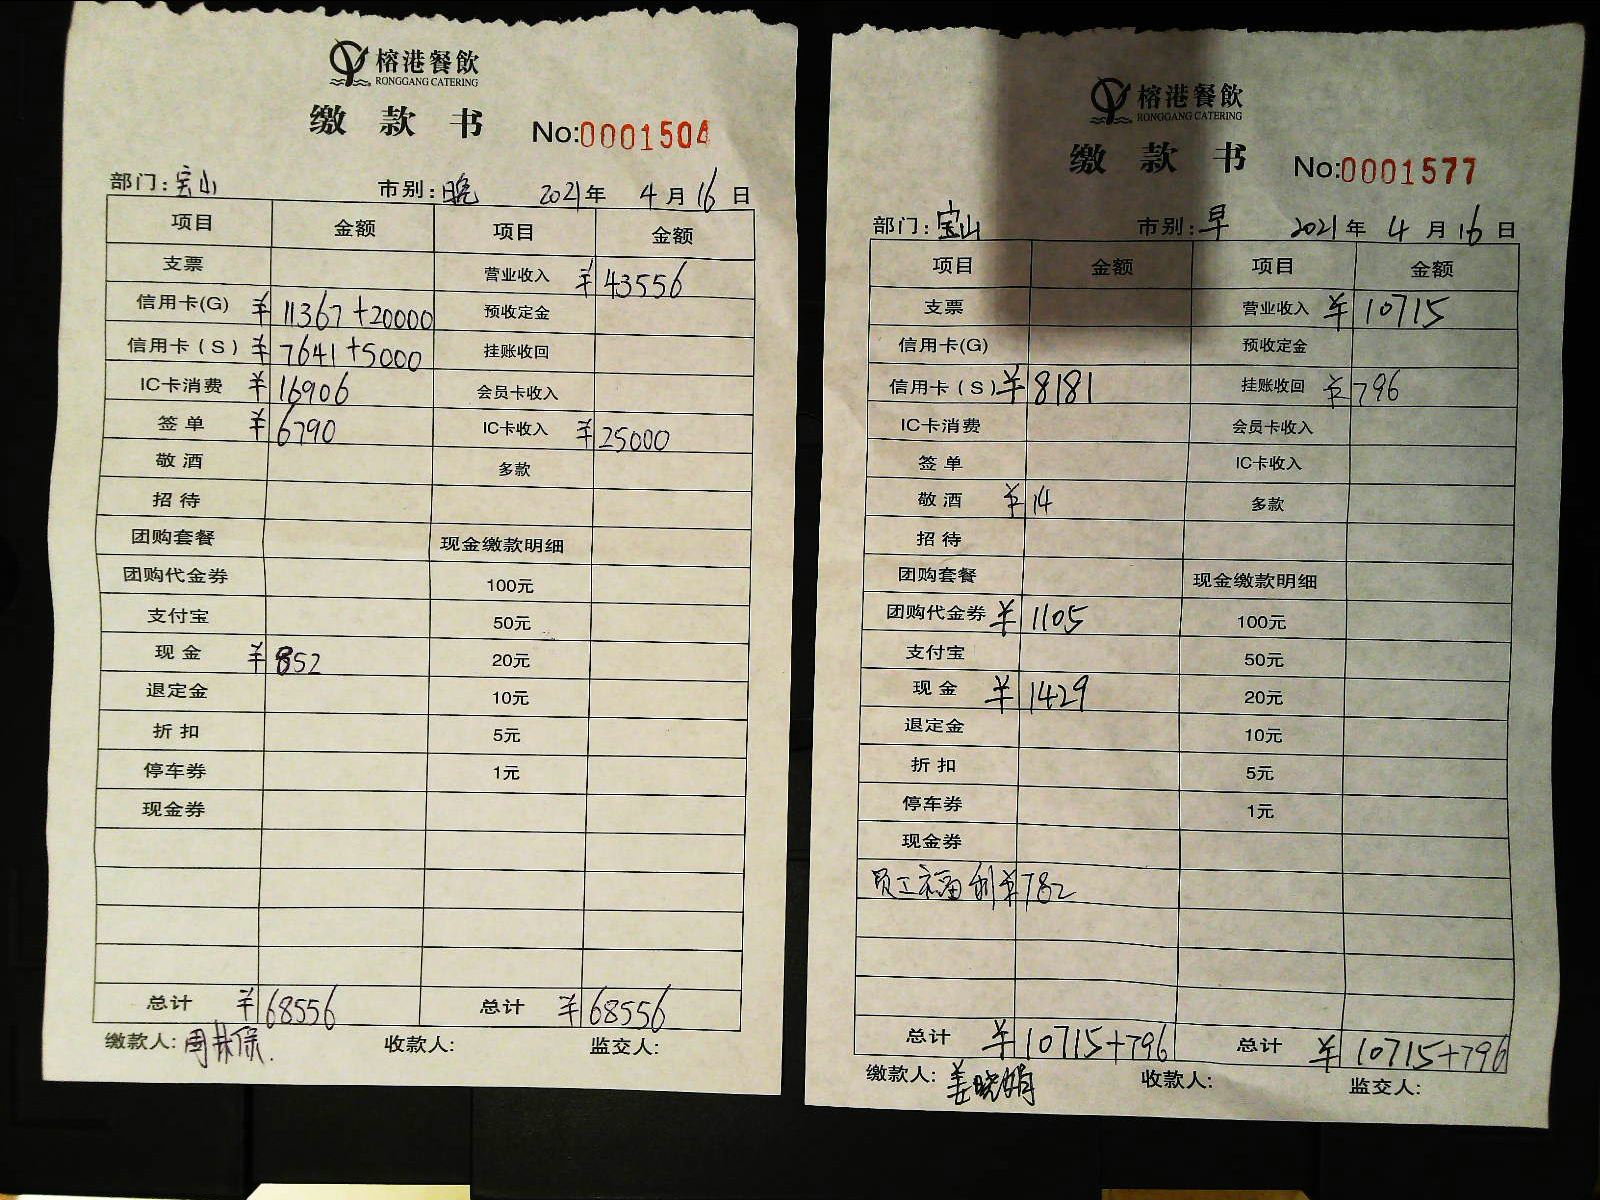 榕港餐飲
RONGGANG CATERING
缴款书 No:0001504
部门:宝山 市别:晚 2021年 4月16日
项目 金额 项目 金额
支票 营业收入 ¥43556
信用卡(G) ¥11367+20000 预收定金
信用卡(S) ¥7641+5000 挂账收回
IC卡消费 ¥16906 会员卡收入
签单 ¥6790 IC卡收入 ¥25000
敬酒 多款
招待
团购套餐 现金缴款明细
团购代金券 100元
支付宝 50元
现金 ¥852 20元
退定金 10元
折扣 5元
停车券 1元
现金券
总计 ¥68556 总计 ¥68556
缴款人:周 收款人: 监交人:
榕港餐飲
RONGGANG CATERING
缴款书 No:0001577
部门:宝山 市别:早 2021年 4月16日
项目 金额 项目 金额
支票 营业收入 ¥10715
信用卡(G) 预收定金
信用卡(S) ¥8181 挂账收回 ¥796
IC卡消费 会员卡收入
签单 IC卡收入
敬酒 ¥14 多款
招待
团购套餐 现金缴款明细
团购代金券 ¥1105 100元
支付宝 50元
现金 ¥1429 20元
退定金 10元
折扣 5元
停车券 1元
现金券
员工福利 ¥782
总计 ¥10715+796 总计 ¥10715+796
缴款人:姜晓娟 收款人: 监交人: